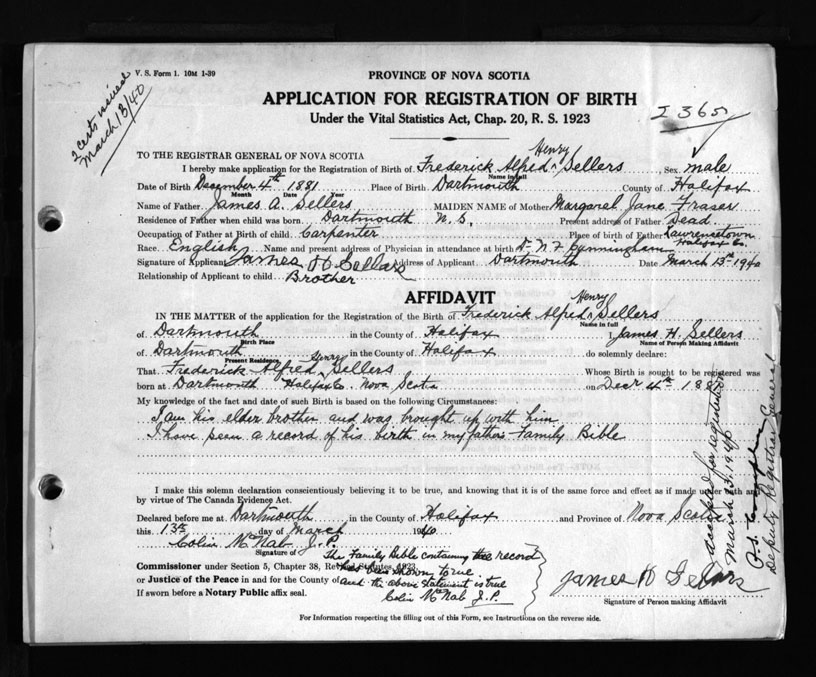 V. S. Form 1. 10M 1-39
2 certs issued
March 13/40
PROVINCE OF NOVA SCOTIA
APPLICATION FOR REGISTRATION OF BIRTH
Under the Vital Statistics Act, Chap. 20, R. S. 1923
TO THE REGISTRAR GENERAL OF NOVA SCOTIA
Henry
I hereby make application for the Registration of Birth of Frederick Alfred ^ Sellers, Sex male
Name in full
Date of Birth December 4th 1881 Place of Birth Dartmouth County of Halifax
Month Date Year
Name of Father James A. Sellers MAIDEN NAME of Mother Margaret Jane Fraser
Residence of Father when child was born Dartmouth N. S. Present address of Father Dead
Occupation of Father at Birth of child Carpenter Place of birth of Father Lawrencetown
Halifax Co.
Race English Name and present address of Physician in attendance at birth Dr N F Cunningham
Signature of Applicant James H Sellars Address of Applicant Dartmouth Date March 13th 1940
Relationship of Applicant to child Brother
AFFIDAVIT
Henry
IN THE MATTER of the application for the Registration of the Birth of Frederick Alfred ^ Sellers
Name in full
of Dartmouth in the County of Halifax I, James H. Sellers
Birth Place Name of Person Making Affidavit
of Dartmouth in the County of Halifax do solemnly declare:
Present Residence Henry
That Frederick Alfred ^ Sellers Whose Birth is sought to be registered was
born at Dartmouth Halifax Co. Nova Scotia on Decr 4th 1881
My knowledge of the fact and date of such Birth is based on the following Circumstances:
I am his elder brother and was brought up with him
I have seen a record of his birth in my fathers Family Bible
I make this solemn declaration conscientiously believing it to be true, and knowing that it is of the same force and effect as if made under oath and
by virtue of The Canada Evidence Act.
Declared before me at Dartmouth in the County of Halifax and Province of Nova Scotia
this 13th day of March 1940
Colin McNab J.P.
Signature of
The Family Bible containing the record
Commissioner under Section 5, Chapter 38, Revised Statutes, 1923,
has been shown to me
or Justice of the Peace in and for the County of
and the above statement is true
If sworn before a Notary Public affix seal.
Colin McNab J.P.
James H Sellars
Signature of Person making Affidavit
For Information respecting the filling out of this Form, see Instructions on the reverse side.
Accepted for registration
March 13, 1940
Deputy Registrar General